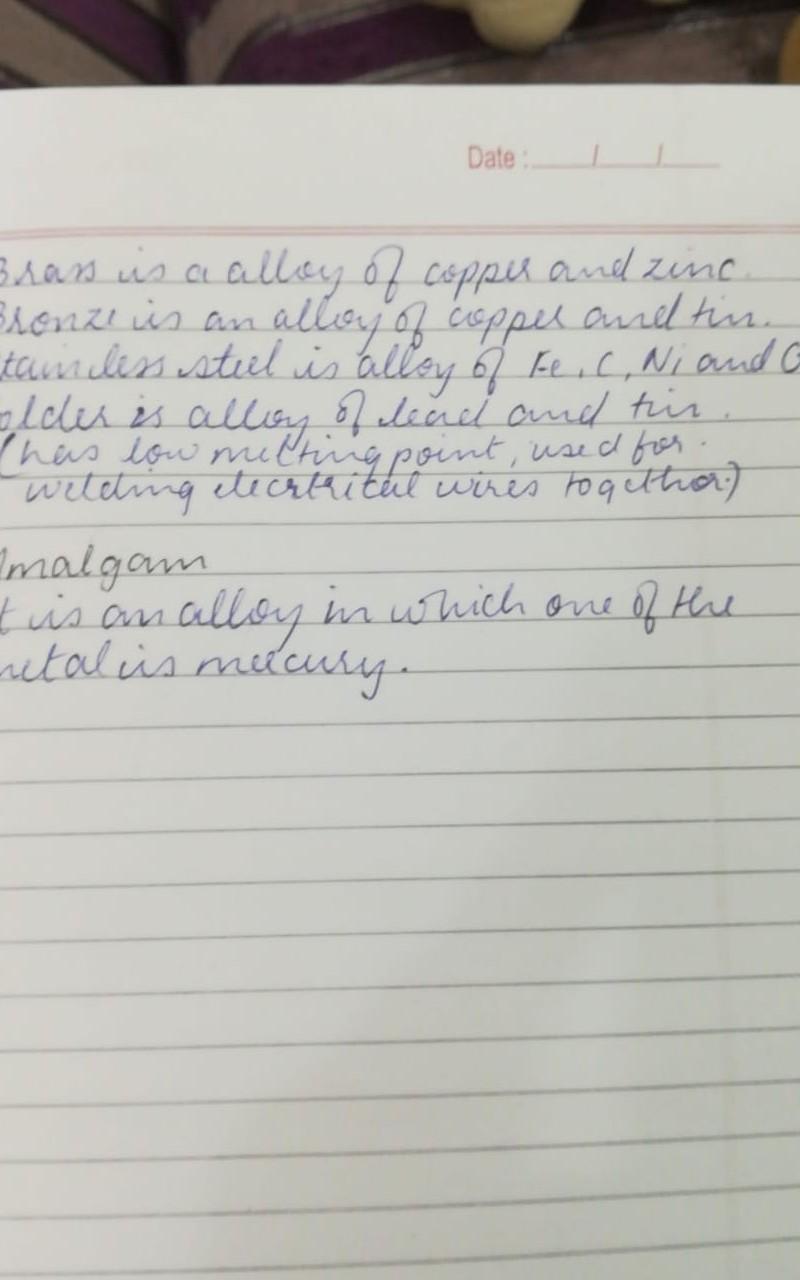 Date : / /
Brass is a alloy of copper and zinc.
Bronze is an alloy of copper and tin.
tainless steel is alloy of Fe, C, Ni and C
older is alloy of lead and tin.
(has low melting point, used for.
welding elecrtrical wires together.)
Amalgam
t is an alloy in which one of the
metal is mercury.